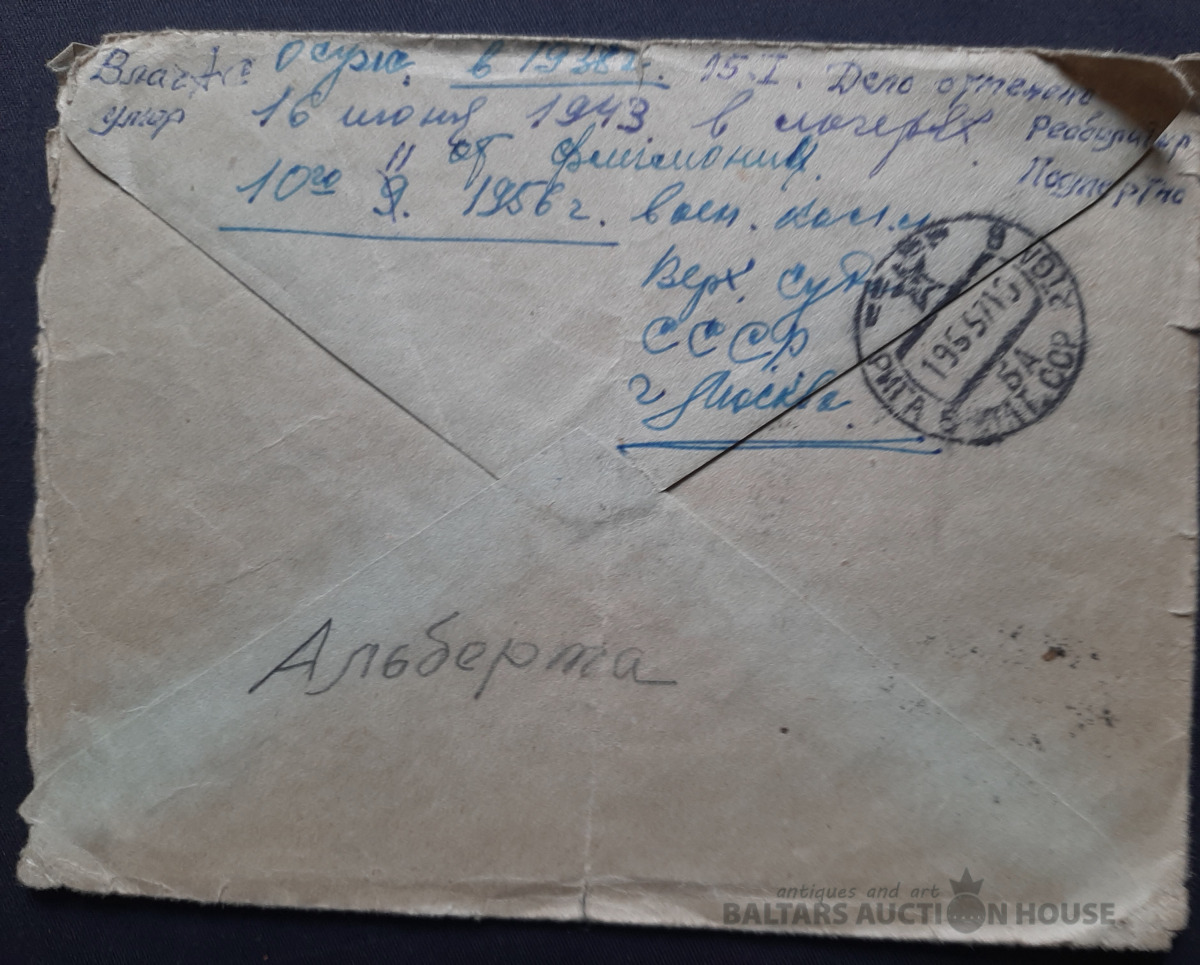 Осужд. в 1938 г. 15.I. Дело отменено
умер 16 июня 1943 в лагерях Реабилитир
от Посмертно
10го 1956 г. воен. кол.
Верх. суд
СССР
г. Москва
РИГА ЛАТ. ССР
5А
Альберта
antiques and art
BALTARS AUCTION HOUSE